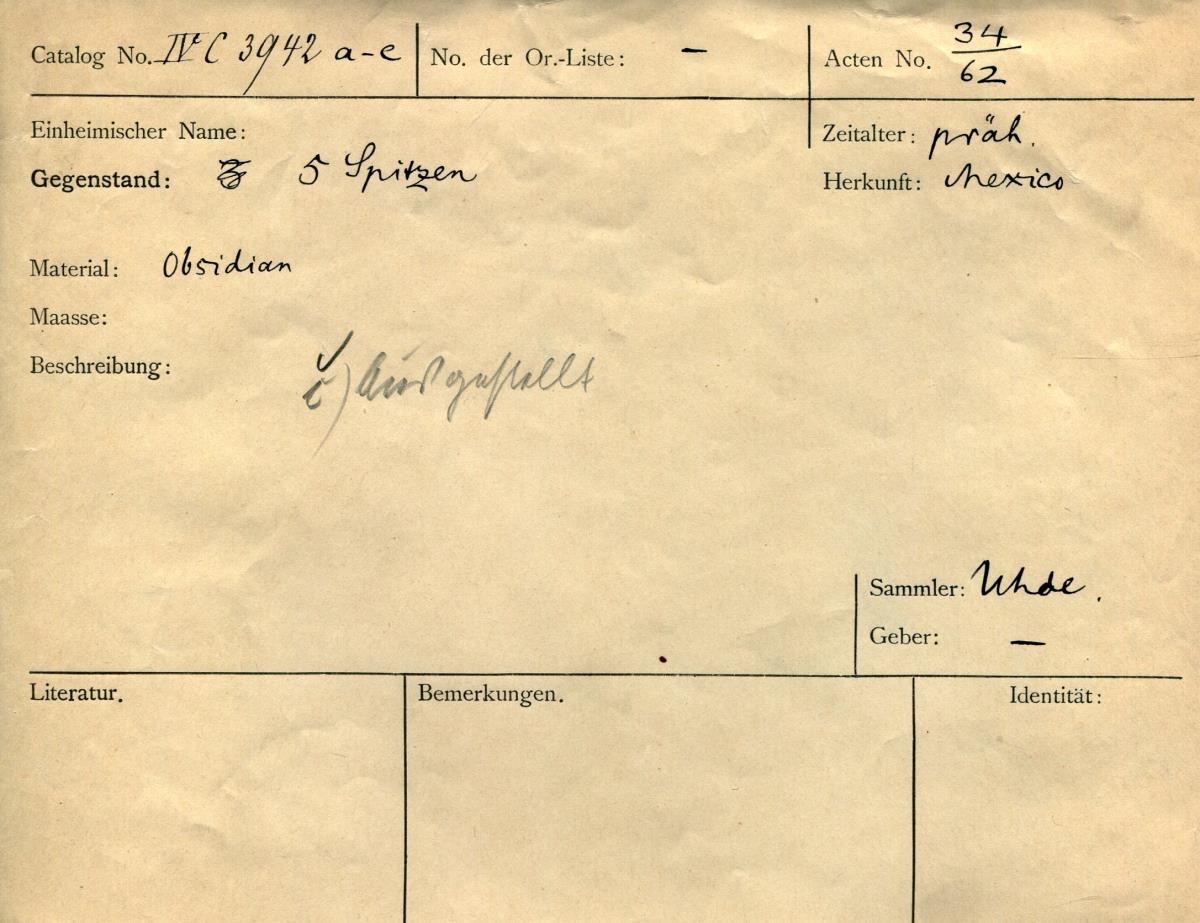 Catalog No. IV C 3942 a-e
No. der Or.-Liste: –
Acten No. 34/62
Einheimischer Name:
Zeitalter: präh.
Gegenstand: 5 Spitzen
Herkunft: Mexico
Material: Obsidian
Maasse:
Beschreibung:
c) Ausgestellt
Sammler: Uhde.
Geber: –
Literatur.
Bemerkungen.
Identität: